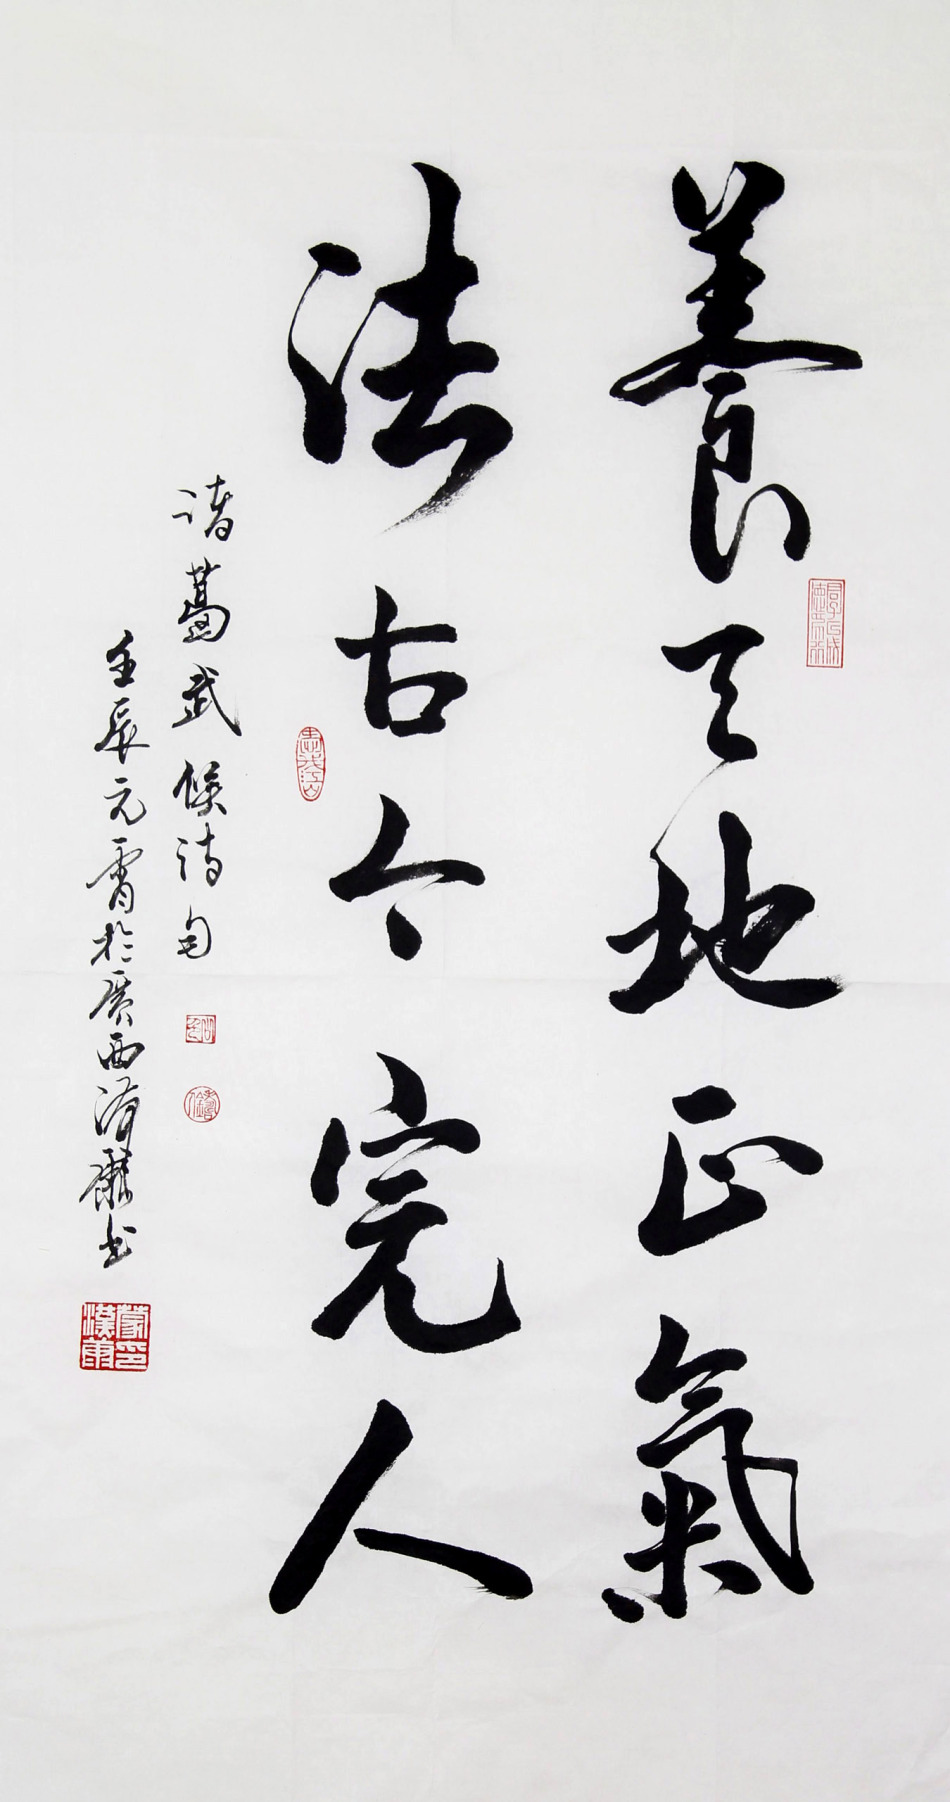 養天地正氣
法古今完人
諸葛武侯詩句
壬辰元霄於廣西 書